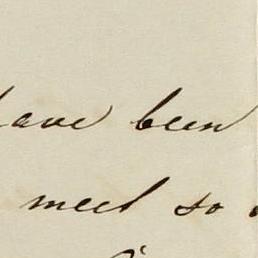 have been
meet so